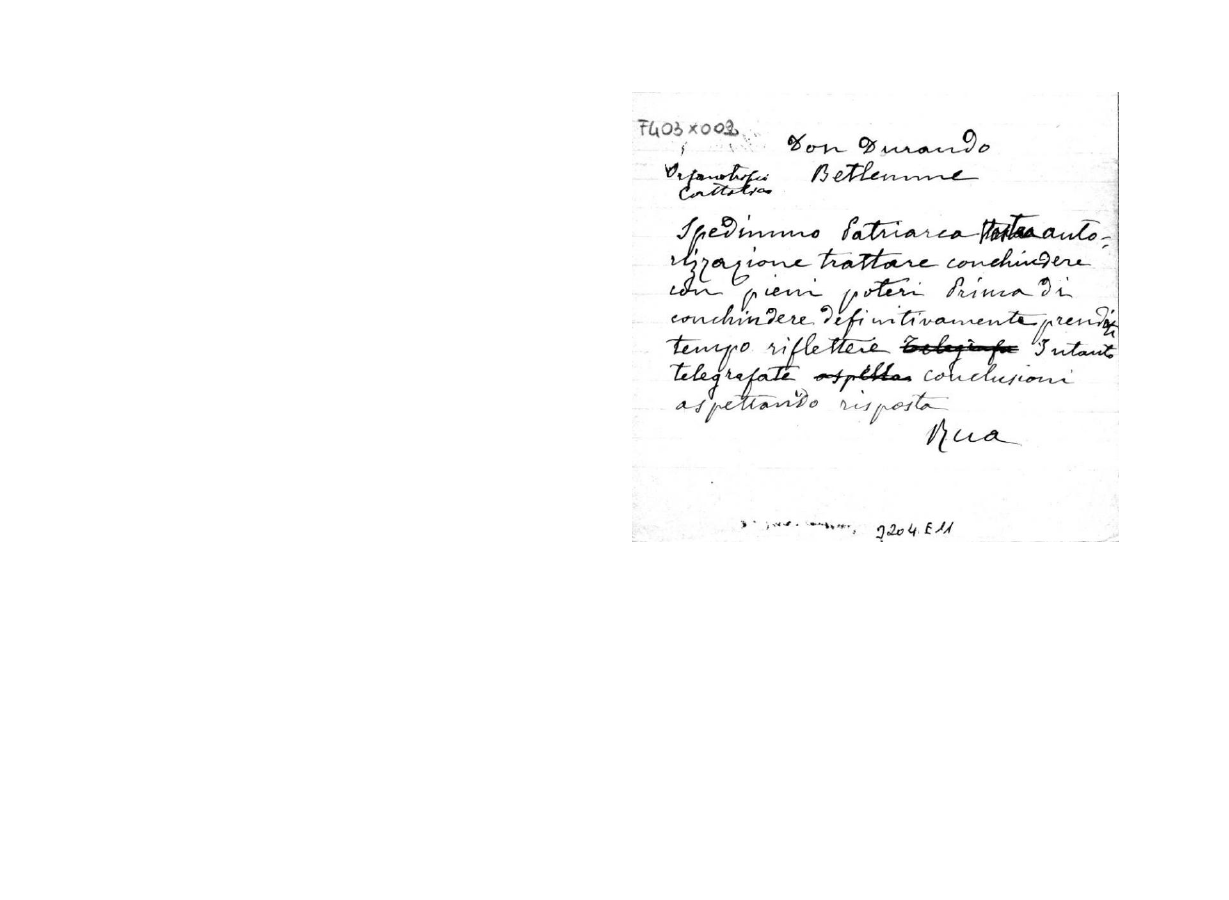 F403X002
Don Durando
Orfanotrofio Betlemme
Cattolico
Spedimmo Patriarca auto-
rizzazione trattare conchiudere
con pieni poteri Prima di
conchiudere definitivamente
tempo riflettere Telegrafa Intanto
telegrafate conclusioni
aspettando risposta
Rua
7204 E11